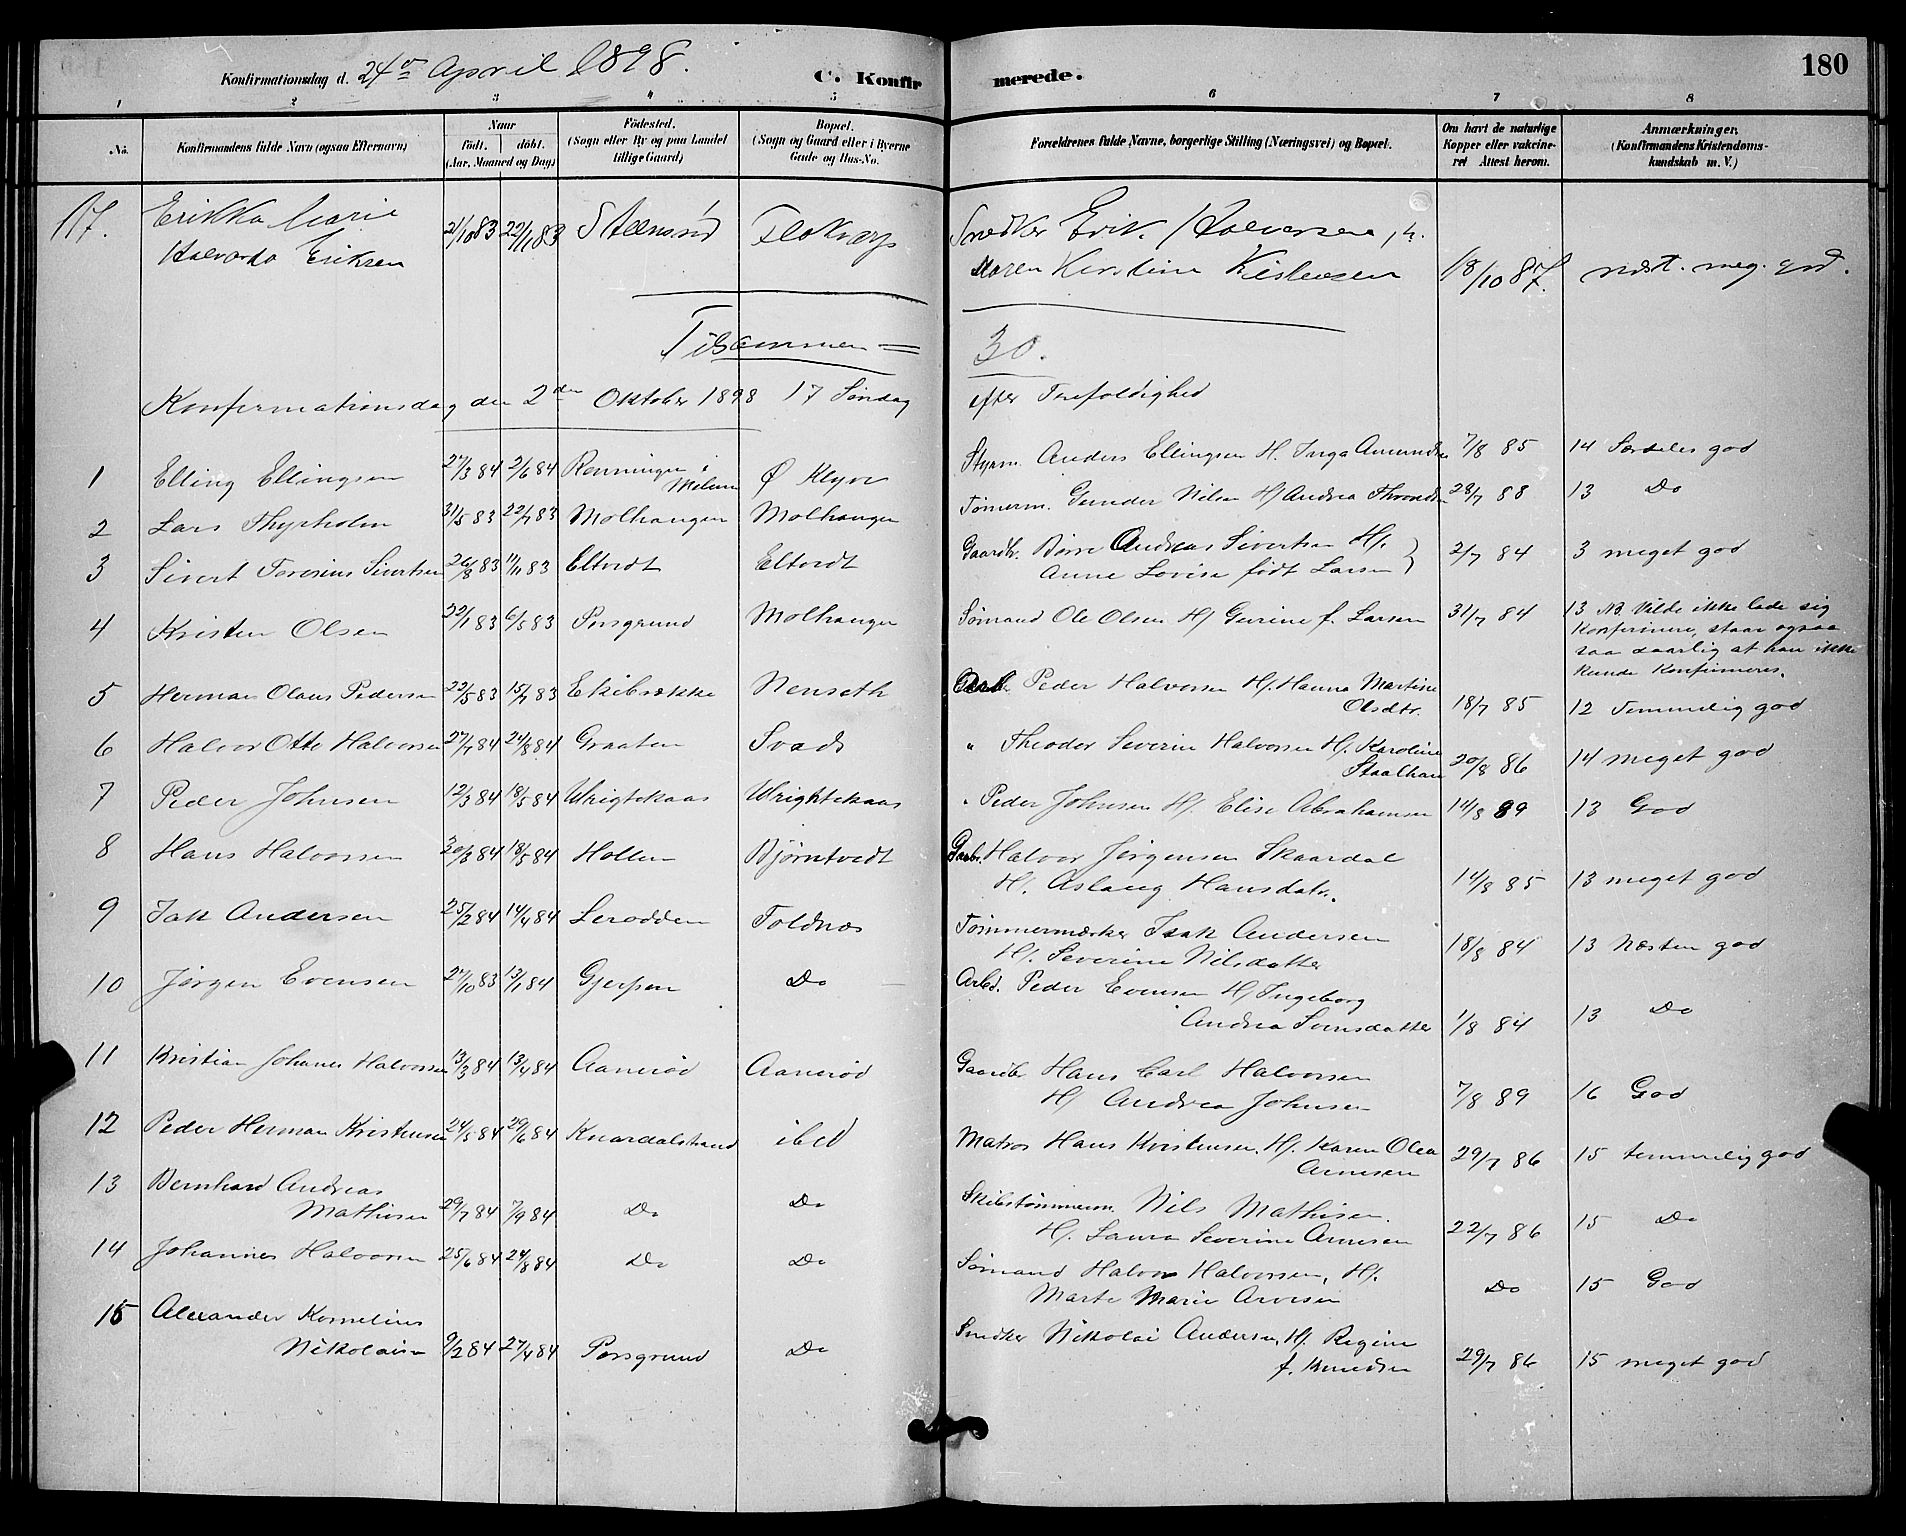 Konfirmationsdag d. 24de April 1898. C. Konfirmerede. 180
1 2 3 4 5 6 7 8
No. Konfirmandens fulde Navn (ogsaa Efternavn) Naar født. døbt. (Aar, Maaned og Dag) Fødested. (Sogn eller By og paa Landet tillige Gaard) Bopæl. (Sogn og Gaard eller i Byerne Gade og Hus-No. Forældrenes fulde Navne, borgerlige Stilling (Næringsvei) og Bopæl. Om havt de naturlige Kopper eller vakcineret Attest herom. Anmærkninger. (Konfirmandens Kristendomskundskab m. V.)
17. Erikka Marie Halvarda Eriksen 2/10 83 22/11 83 Snedker Erik Halvorsen, h. Maren Kirstine 18/10 87. næst. meg. god.
Tilsammen = 30.
Konfirmationsdag den 2den Oktober 1898 17 Søndag efter Trefoldighed
1 Elling Ellingsen 27/3 84 2/6 84 Rønningen i Melum Ø Klyve Styrm. Anders Ellingsen H. Inga Amundsen 7/8 85 14 Særdeles god
2 Lars Thyrholm 31/5 83 22/7 83 Molhaugen Molhaugen Tømerm. Gunder Nilsen H/ Andrea 28/7 88 13 Do
3 Sivert Severins Sivertsen 26/8 83 11/11 83 Eltvedt Eltvedt Gaardbr. Børre Andreas Sivertsen H/. Anne Lovise født Larsen 2/7 84 3 meget god
4 Kristen Olsen 22/1 83 6/5 83 Porsgrund Molhaugen Sømand Ole Olsen H/ Gurine f. Larsen 31/7 84 13 NB Vilde ikke lade sig Konfirmere, staar ogsaa saa daarlig at han ikke kunde Konfirmeres.
5 Herman Olaus Pedersen 22/5 83 15/7 83 Nenseth Arb. Peder Halvorsen H/. Hanna Martine Olsdtr. 18/7 85 12 Temmelig god
6 Halvor Otto Halvorsen 27/7 84 24/8 84 Graaten Svads " Theodor Severin Halvorsen H/. Karoline Staalhane 20/8 86 14 meget god
7 Peder Johnsen 12/3 84 18/5 84 Wrightskaas Wrightskaas " Peder Johnsen H/. Elise Abrahamsen 14/8 89 13 God
8 Hans Halvorsen 30/3 84 18/5 84 Hollen Bjørntvedt Gaabr. Halvor Jørgensen Skaardal H/. Aslaug Hansdatr. 14/8 85 13 meget god
9 Isak Andersen 25/2 84 14/4 84 Lerodden Toldnæs Tømmermærker Isak Andersen H/. Severine Nilsdatter 18/8 84 13 Næsten god
10 Jørgen Evensen 27/10 83 13/1 84 Gjerpen Do Arbd. Peder Evensen H/ Ingeborg Andrea 1/8 84 13 Do
11 Kristian Johanes Halvorsen 13/3 84 13/4 84 Aanerød Aanerød Gaardbr Hans Carl Halvorsen H/ Andrea Johnsen 7/8 89 16 God
12 Peder Herman Kristensen 24/5 84 29/6 84 Knardalstrand ibid Matros Hans Kristensen, H/. Karen Olea Arnesen 29/7 86 15 temmelig god
13 Bernhard Andreas Mathisen 29/7 84 7/9 84 Do Do Skibstømmerm. Nils Mathisen. H/. Laura Severine Arnesen 22/7 86 15 Do
14 Johannes Halvorsen 25/6 84 24/8 84 Do Do Sømand Halvor Halvorsen, H/. Marte Marie Arvesen Do 15 God
15 Alexander Kornelius Nikolaisen 9/2 84 27/4 84 Porsgrund Do Snedker Nikolai Andersen, H/. Regine f. Knudsen 29/7 86 15 meget god